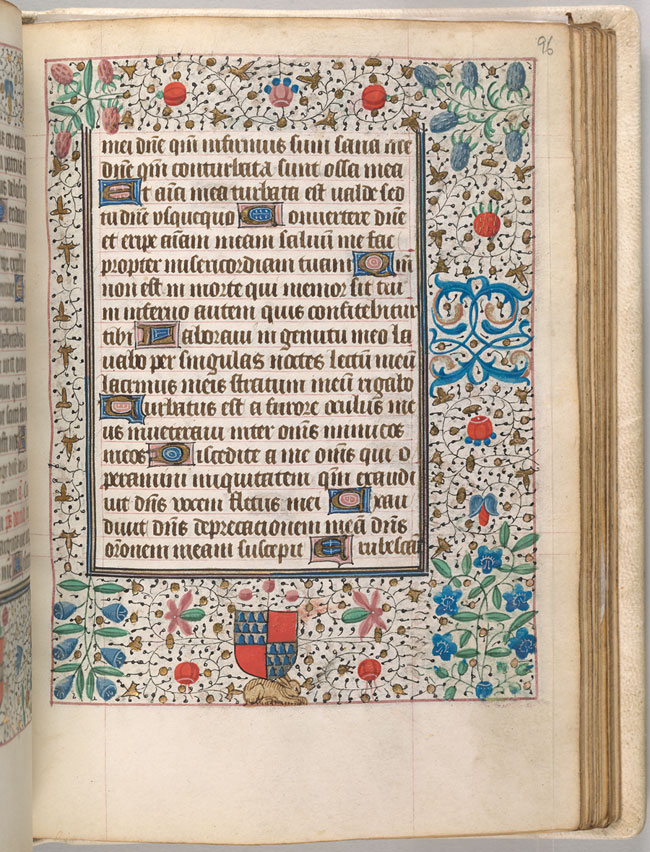 96
mei dñe qm̃ infirmus sum sana me
dñe qm̃ conturbata sunt ossa mea
Et aĩa mea turbata est ualde sed
tu dñe vsquequo Conuertere dñe
et eripe aĩam meam saluũ me fac
propter misericordiam tuam Qm̃
non est in morte qui memor sit tui
in inferno autem quis confitebitur
tibi Laboraui in gemitu meo la
uabo per singulas noctes lectũ meũ
lacrimis meis stratum meũ rigabo
Turbatus est a furore oculus me
us inueteraui inter om̃s inimicos
meos Discedite a me om̃s qui o
peramini iniquitatem qm̃ exaudi
uit dñs vocem fletus mei Exau
diuit dñs deprecacionem meã dñs
or̃onem meam suscepit Erubescãt